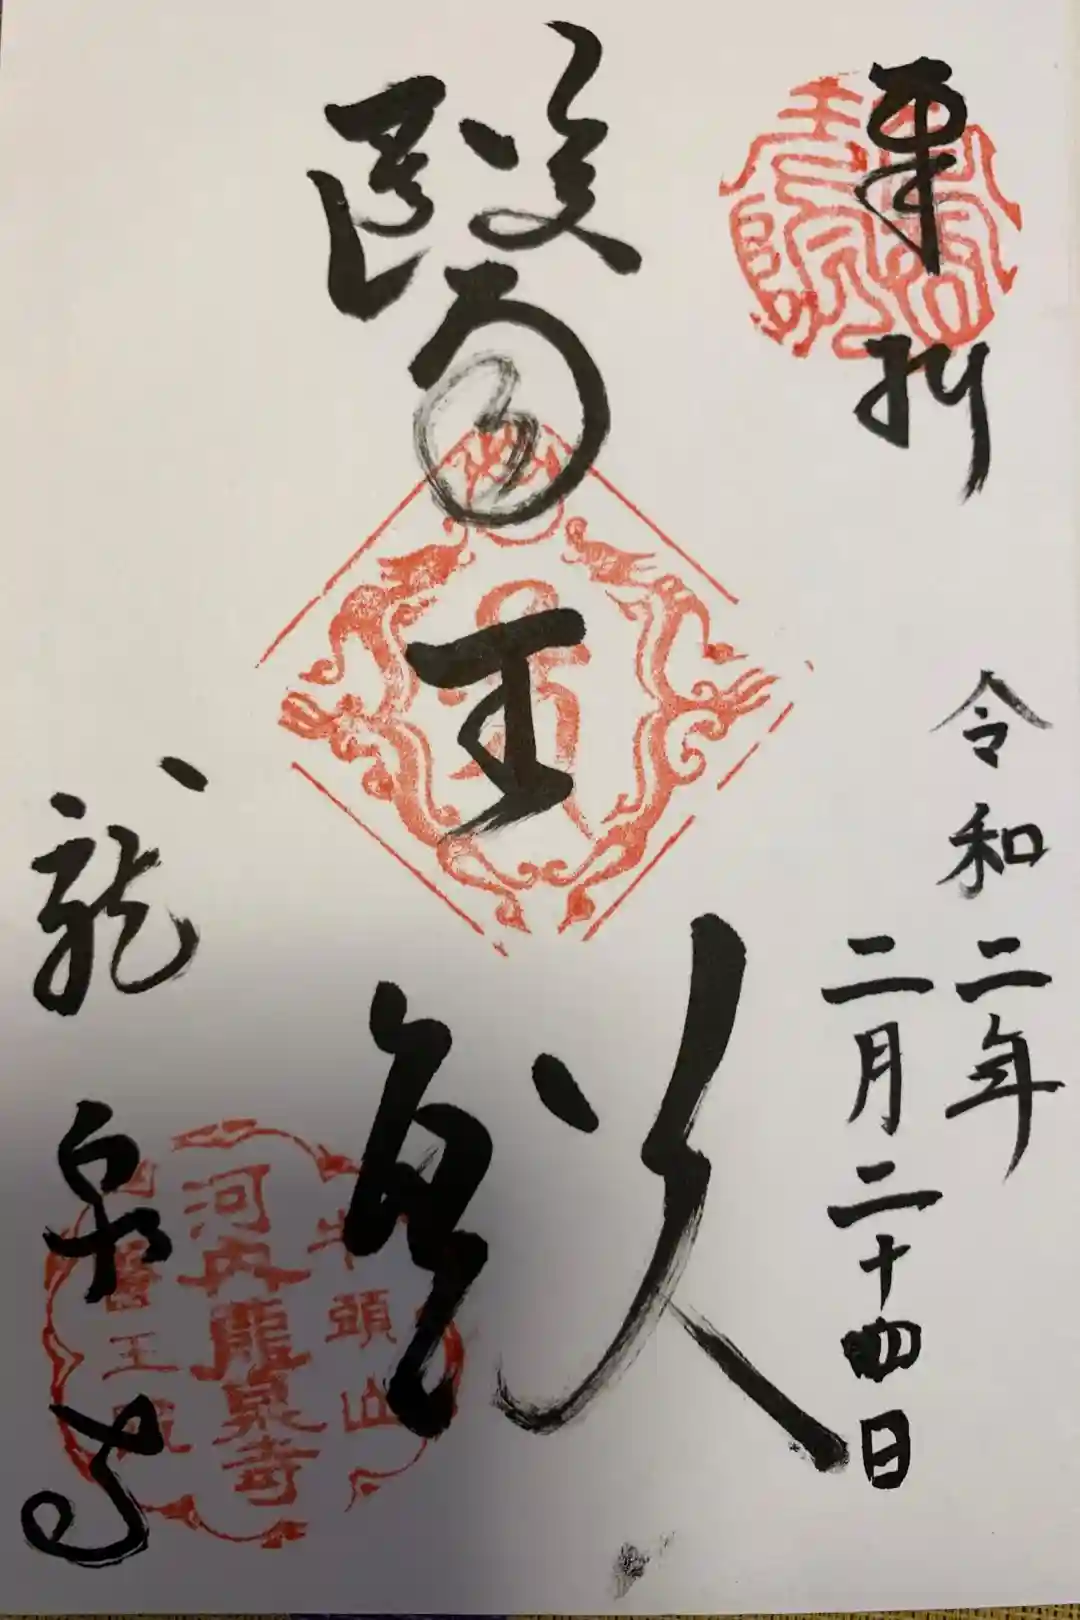 奉拝
令和二年
二月二十四日
醫王殿
龍泉寺
牛頭山
河内龍泉寺
醫王殿